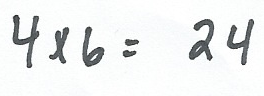 4x6= 24